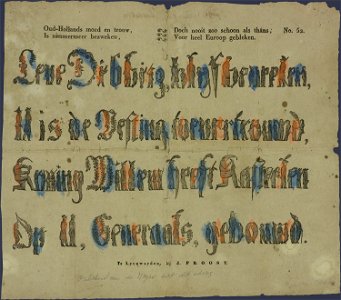 Oud-Hollands moed en trouw,
Is nimmermeer bezweken,
Doch nooit zoo schoon als thans,
Voor heel Europ gebleken.
No. 52.
Leve Dibbitz, blyf bevreten,
U is de Vesting toevertrouwd,
Koning Willem heeft Kasteelen
Op U, Generaals, gebouwd.
Te Leeuwarden, bij J. PROOST.